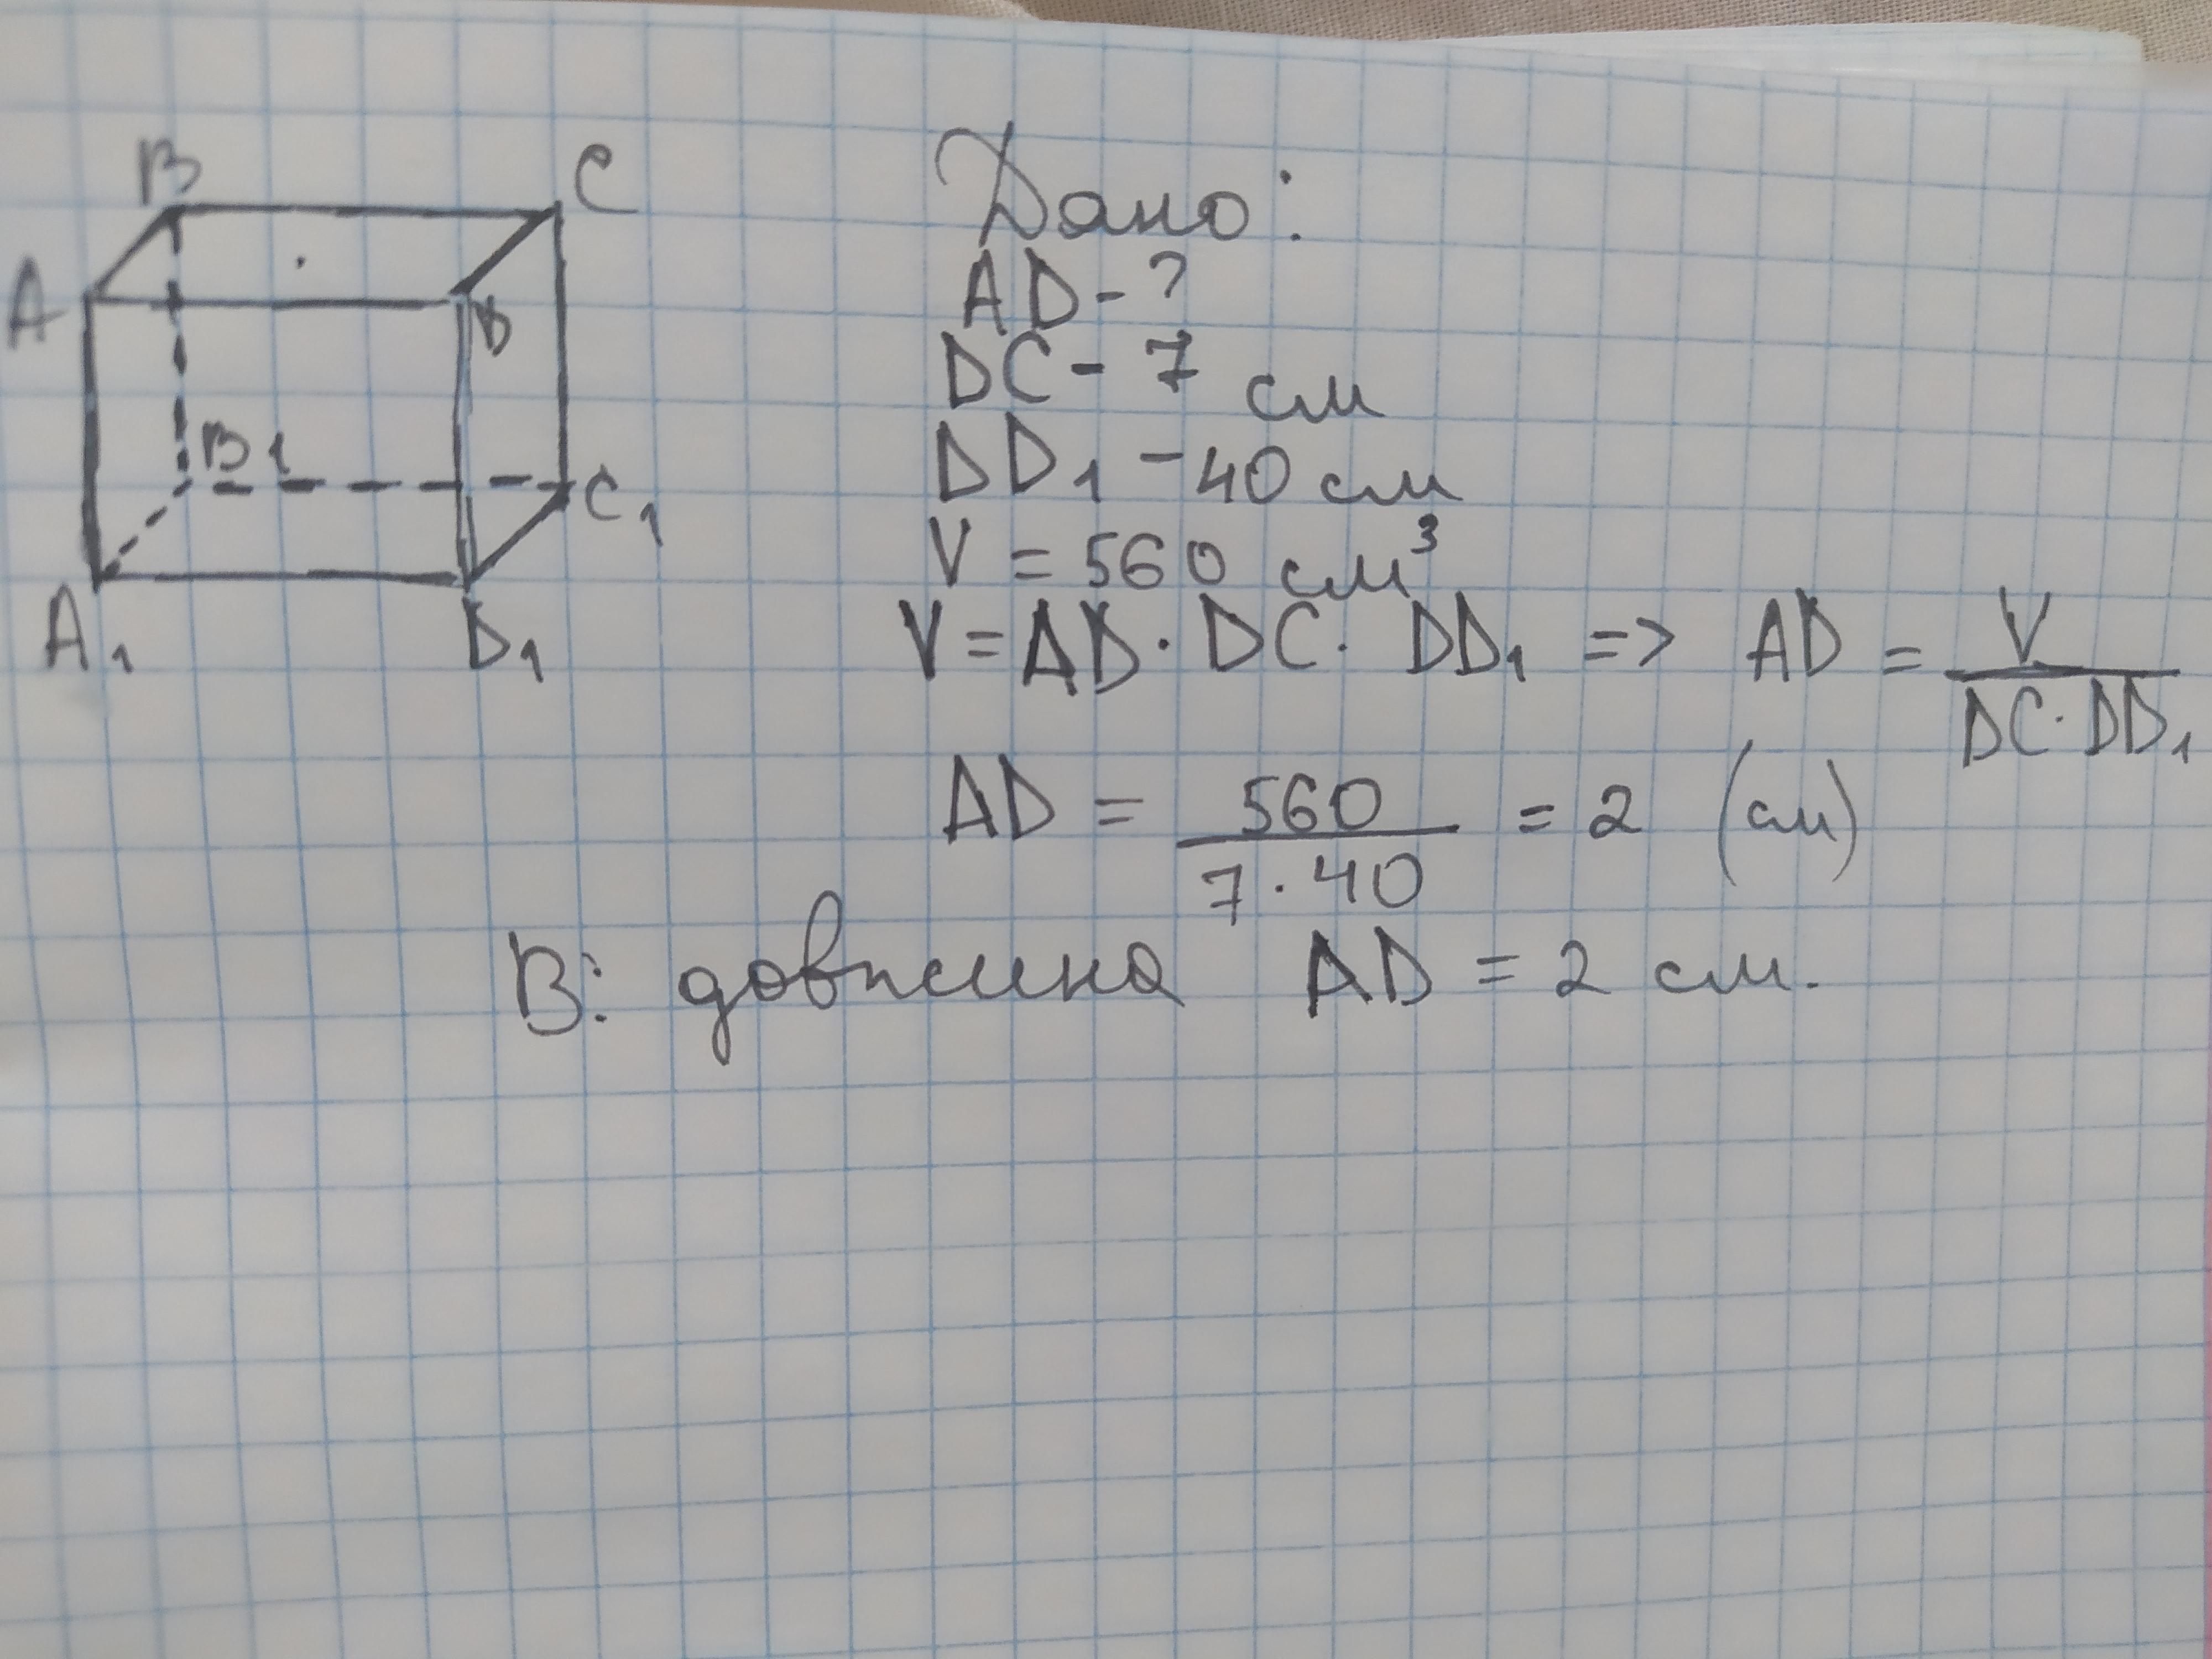 B C
A D
B1
C1
A1 D1
Дано:
AD - ?
DC - 7 см
DD1 - 40 см
V = 560 см³
V = AD · DC · DD1 => AD = V / DC · DD1
AD = 560 / 7 · 40 = 2 (см)
В: довжина AD = 2 см.